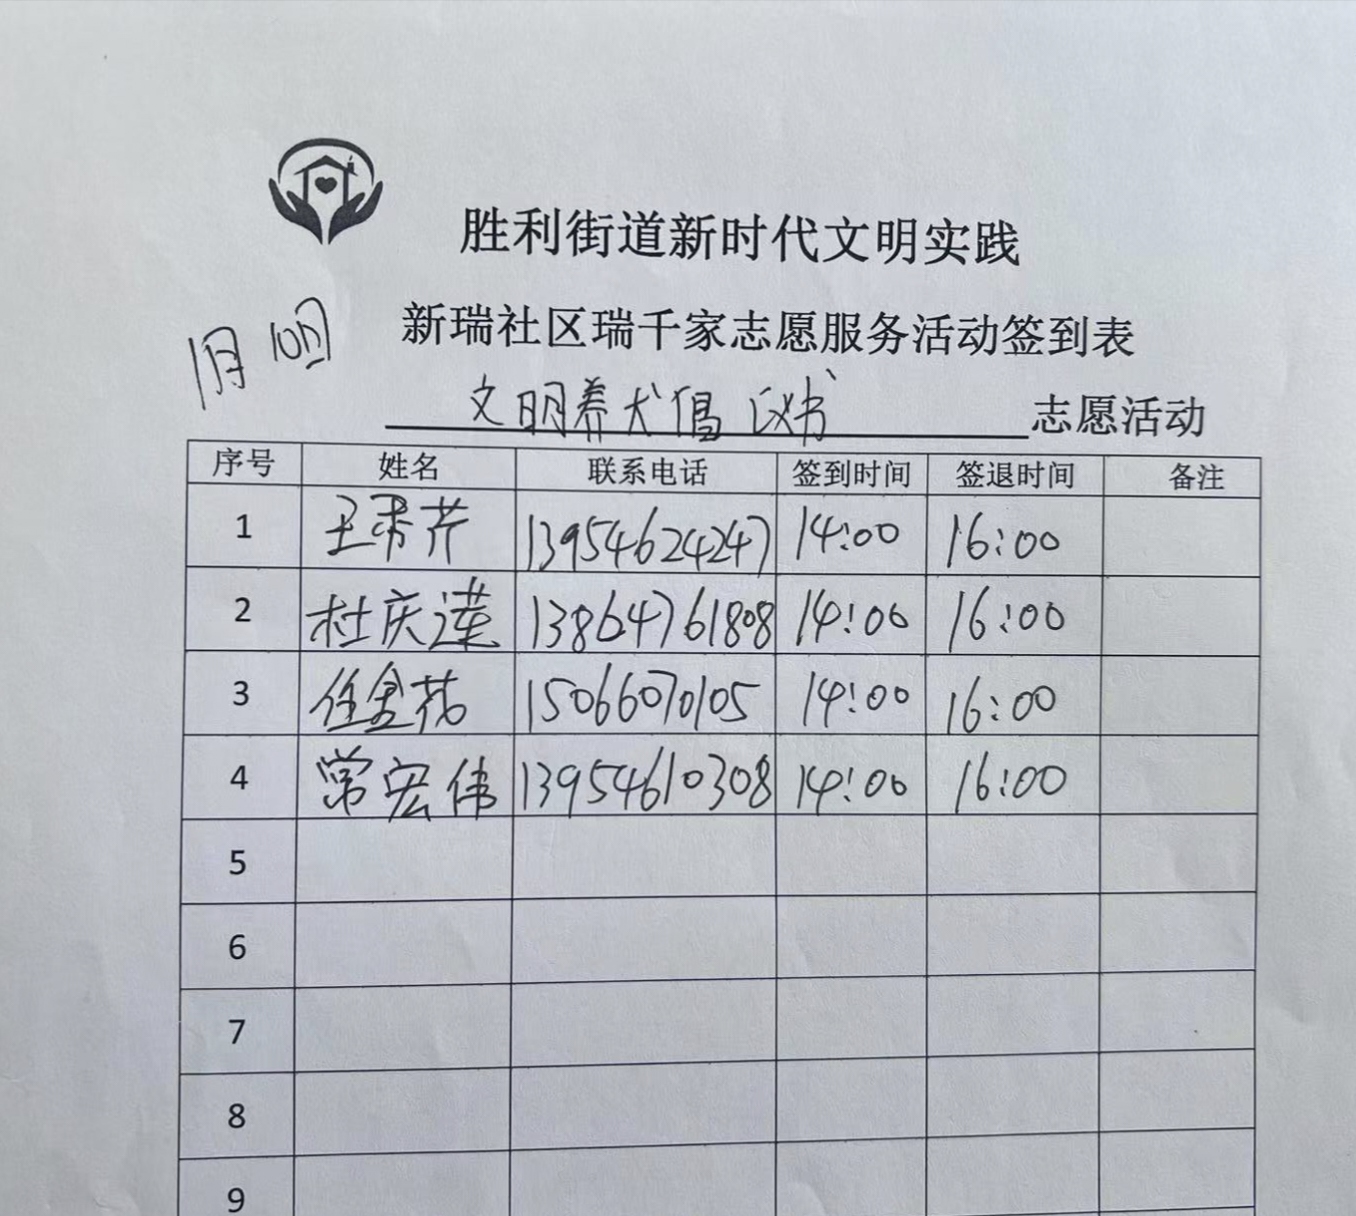 胜利街道新时代文明实践
新瑞社区瑞千家志愿服务活动签到表
1月10日
文明养犬倡议书 志愿活动
序号 姓名 联系电话 签到时间 签退时间 备注
1 王 芹 13954624247 14:00 16:00
2 杜庆莲 13864761808 14:00 16:00
3 任金 15066070105 14:00 16:00
4 常宏伟 13954610308 14:00 16:00
5
6
7
8
9